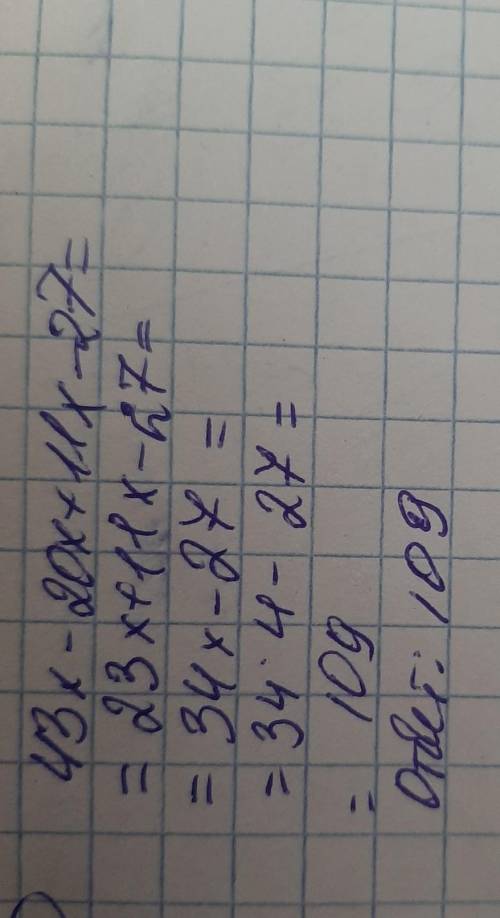 43x - 20x + 11x - 27 =
= 23x + 11x - 27 =
= 34x - 27 =
= 34 · 4 - 27 =
= 109
Ответ: 109